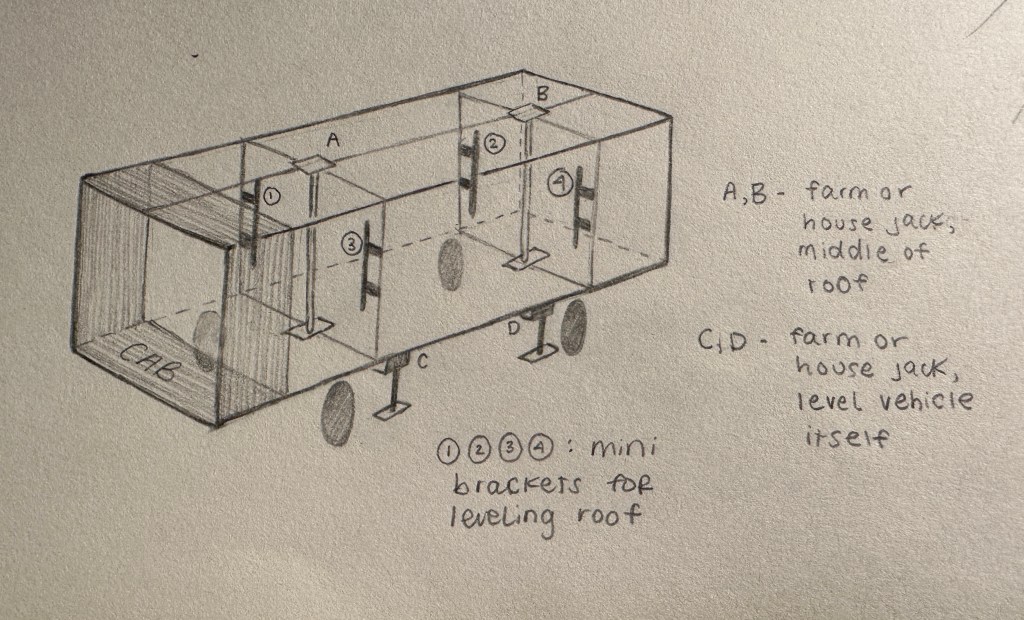 A
B
①
②
③
④
CAB
C
D
A,B - farm or
house jack,
middle of
roof
C,D - farm or
house jack,
level vehicle
itself
① ② ③ ④ : mini
brackets for
leveling roof